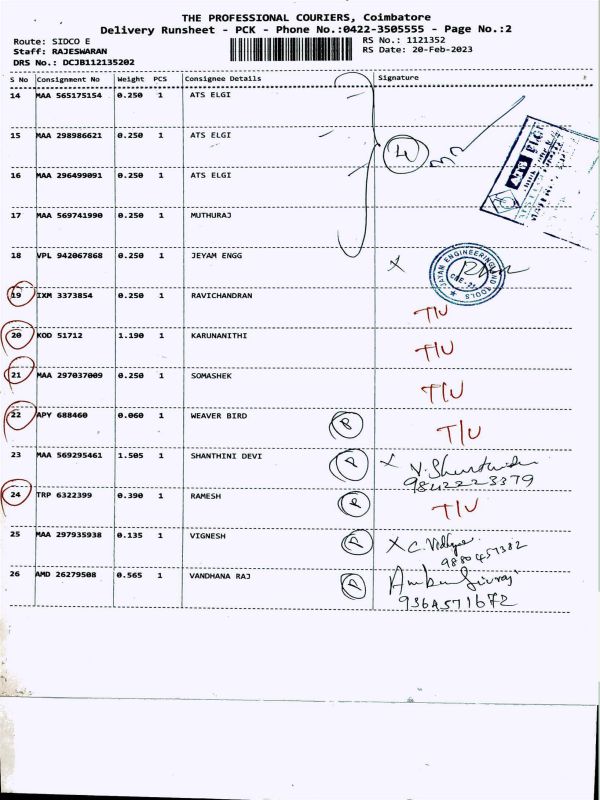 THE PROFESSIONAL COURIERS, Coimbatore
Delivery Runsheet - PCK - Phone No.:0422-3505555 - Page No.:2
Route: SIDCO E RS No.: 1121352
Staff: RAJESWARAN RS Date: 20-Feb-2023
DRS No.: DCJB112135202
S No Consignment No Weight PCS Consignee Details Signature
14 MAA 565175154 0.250 1 ATS ELGI
15 MAA 298986621 0.250 1 ATS ELGI
16 MAA 296499091 0.250 1 ATS ELGI
ATS ELGI
17 MAA 569741990 0.250 1 MUTHURAJ
18 VPL 942067868 0.250 1 JEYAM ENGG X
JAYAM ENGINEERING AND TOOLS
CBE-21
19 IXM 3373854 0.250 1 RAVICHANDRAN T/U
20 KOD 51712 1.190 1 KARUNANITHI T/U
21 MAA 297037009 0.250 1 SOMASHEK T/U
22 APY 688460 0.060 1 WEAVER BIRD T/U
23 MAA 569295461 1.505 1 SHANTHINI DEVI P X
9842223379
24 TRP 6322399 0.390 1 RAMESH P T/U
25 MAA 297935938 0.135 1 VIGNESH P X C. Vidhya
9880457382
26 AMD 26279508 0.565 1 VANDHANA RAJ P
9364571672